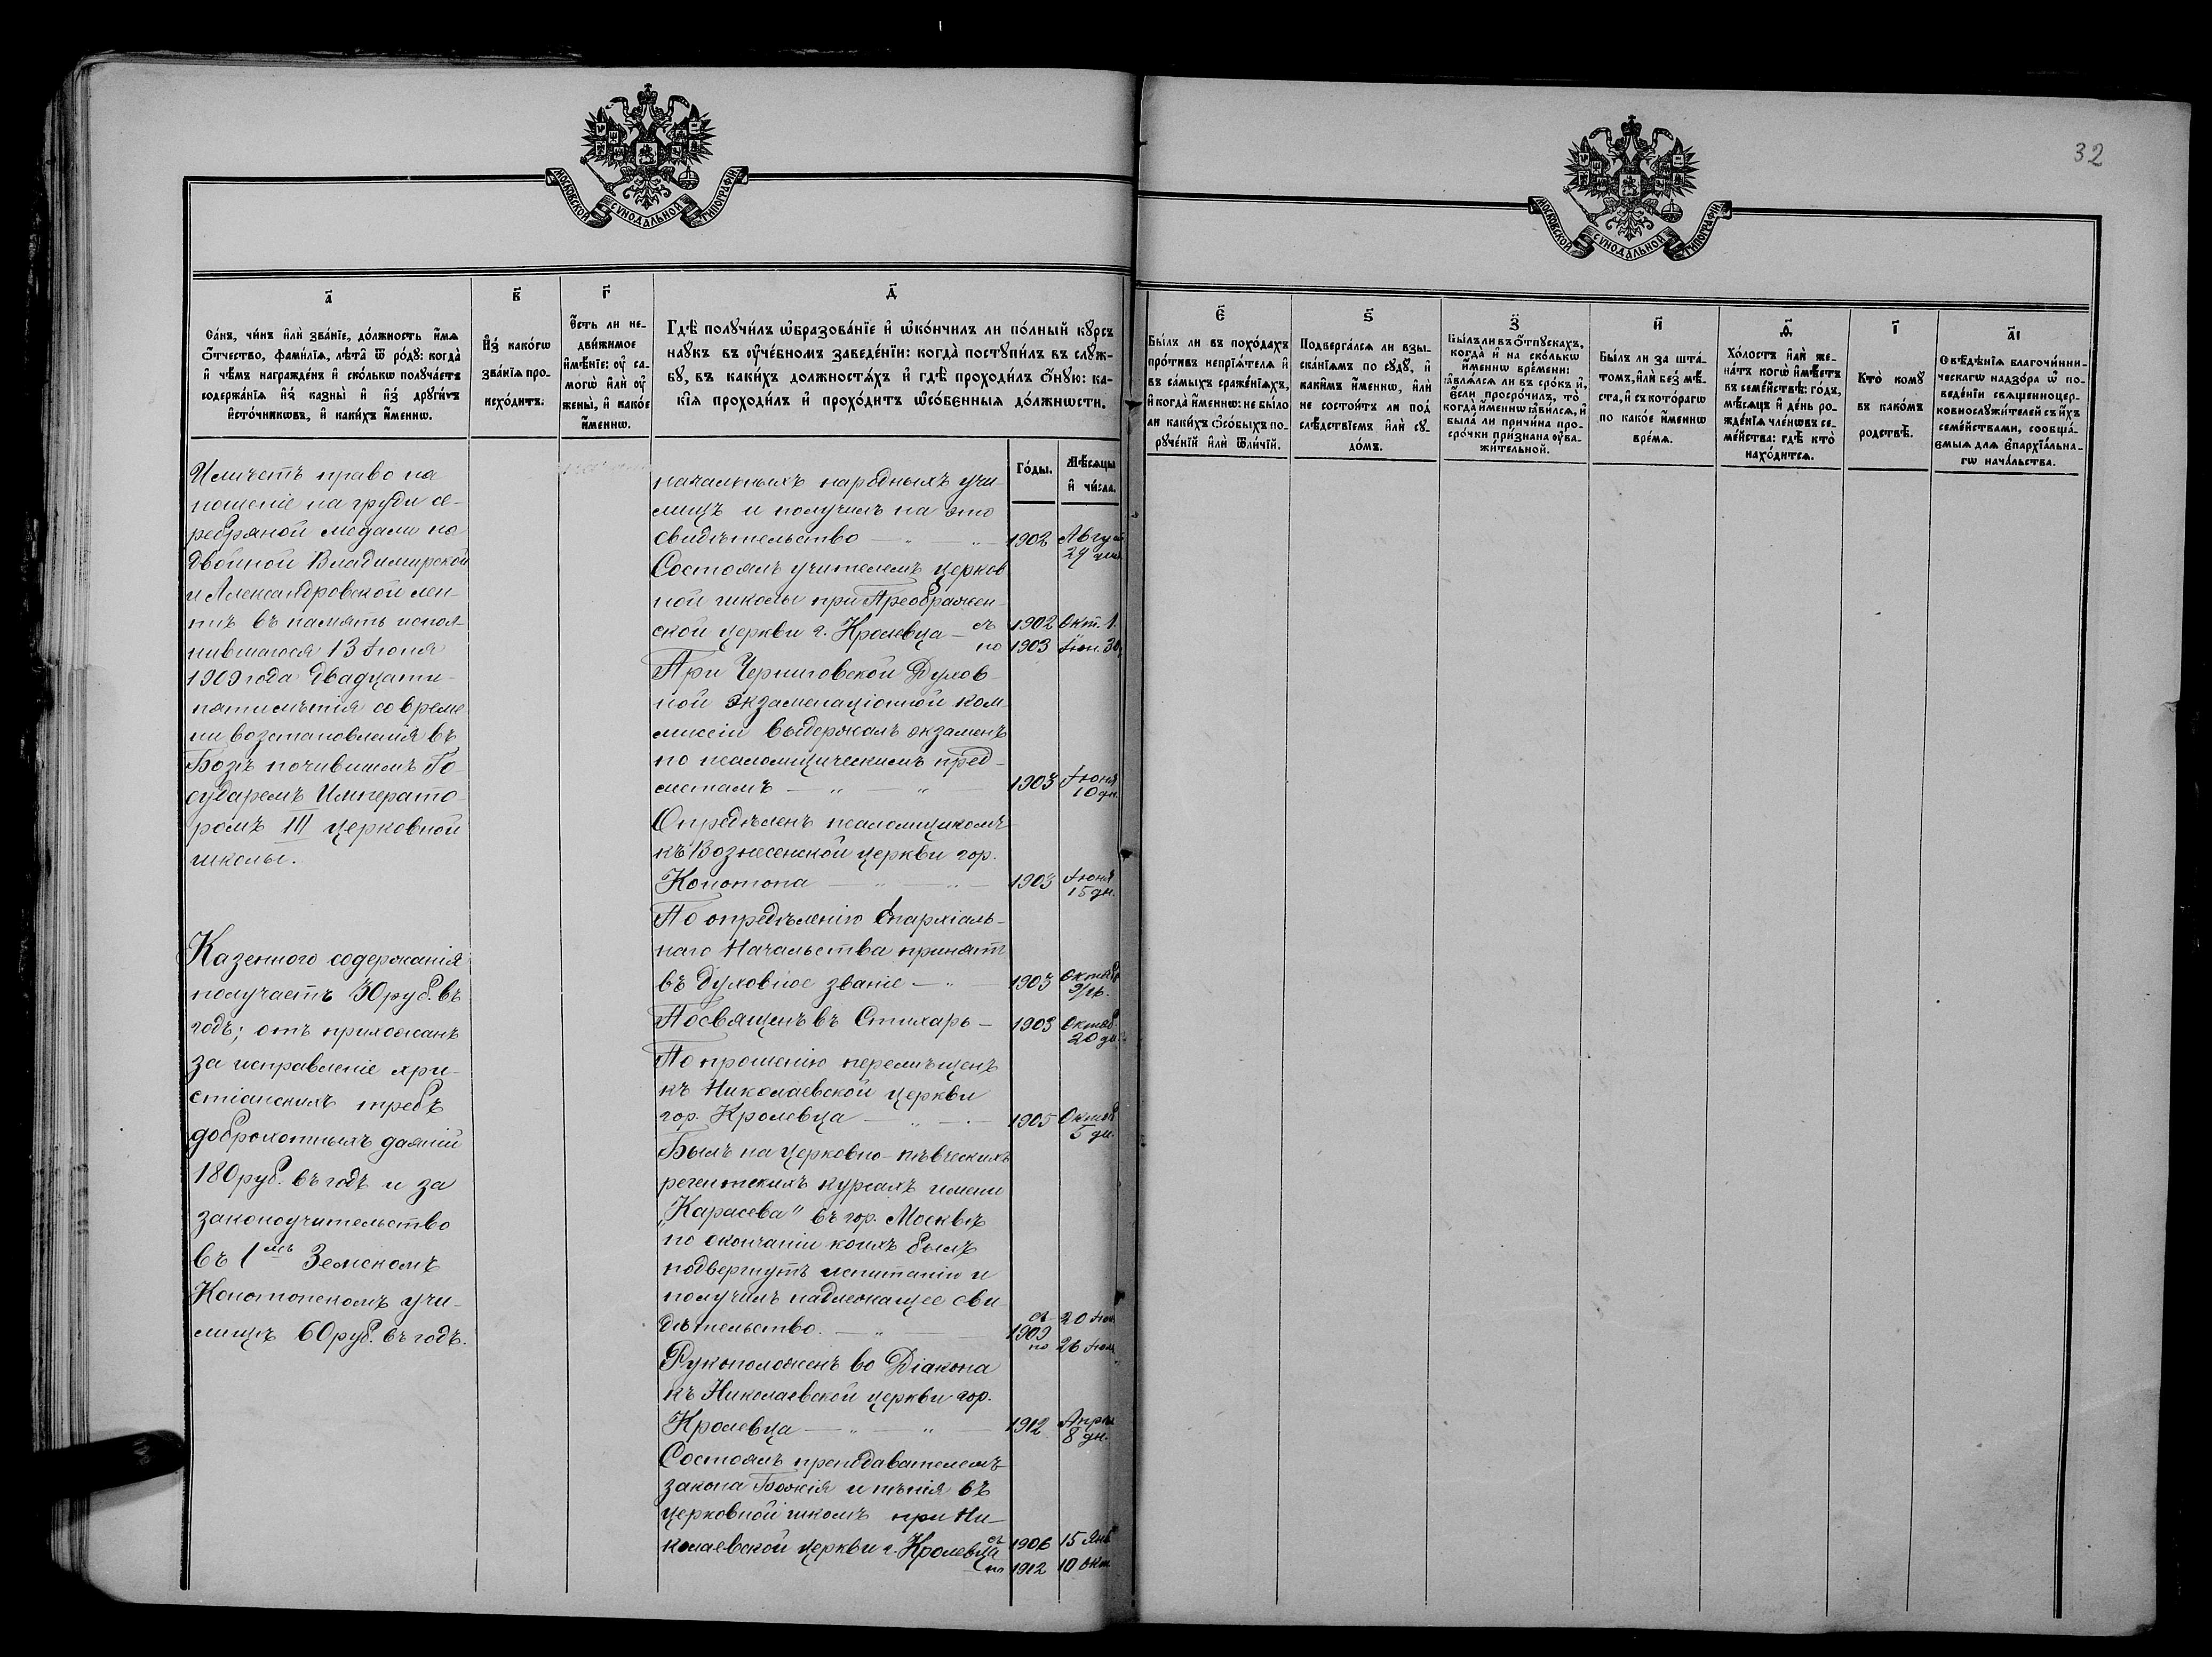 32
МОСКОВСКОЙ СУНОДАЛЬНОЙ ТИПОГРАФІИ
МОСКОВСКОЙ СУНОДАЛЬНОЙ ТИПОГРАФІИ
а҃
Са́нъ, чи́нъ и҆лѝ зва́нїе, до́лжность и҆́мѧ
ѻ҆́тчество, фами́лїѧ, лѣ́та ѿ ро́дꙋ: когда̀
и҆ чѣ́мъ награжде́нъ и҆ ско́лькѡ получа́етъ
содержа́нїѧ и҆з̾ казны̀ и҆ и҆з̾ дрꙋги́хъ
и҆сто́чникѡвъ, и҆ каки́хъ и҆́меннѡ.
в҃
И҆з̾ како́гѡ
зва́нїѧ про-
исхо́дитъ.
г҃
Є҆́сть ли не-
дви́жимое
и҆мѣ́нїе: ᲂу҆ са-
могѡ̀ и҆лѝ ᲂу҆
жены̀, и҆ како́е
и҆́меннѡ.
д҃
Гдѣ̀ получи́лъ ѡ҆бразова́нїе и҆ ѡ҆ко́нчилъ ли по́лный кꙋ́рсъ
наꙋ́къ въ ᲂу҆че́бномъ заведе́нїи: когда̀ постꙋпи́лъ въ слꙋ́ж-
бꙋ, въ каки́хъ должностѧ́хъ и҆ гдѣ̀ проходи́лъ ѻ҆́нꙋю: ка-
кі́ѧ проходи́лъ и҆ прохо́дитъ ѡ҆со́бєнныѧ до́лжнѡсти.
Го́ды.
Мѣ́сѧцы
и҆ чи́сла.
Имѣетъ право на
ношеніе на груди се-
ребряной медали на
двойной Владимирской
и Александровской лен-
тѣ въ память испол-
нившагося 13 Іюня
1909 года двадцати-
пятилѣтія со време
ни возстановленія въ
Бозѣ почившимъ Го-
сударемъ Императо-
ромъ III церковной
школы.
Казеннаго содержанія
получаетъ 30 руб. въ
годъ; отъ прихожанъ
за исправленіе хри-
стіанскихъ требъ
доброхотныхъ даяній
180 руб. въ годъ и за
законоучительство
въ 1мъ Земскомъ
Конотопскомъ учи-
лищѣ 60 руб. въ годъ.
начальныхъ народныхъ учи-
лищъ и получилъ на это
свидѣтельство — „ — „ — 1902 Август
29 дня
Состоялъ учителемъ церков
ной школы при Преображен-
ской церкви г. Кролевца — съ 1902 Окт. 1.
по 1903 Іюн. 30
При Черниговской Духов-
ной экзаменаціонной ком
миссіи выдержалъ экзаменъ
по псаломщическимъ пред-
метамъ — „ „ — 1903 Іюня
10 дн.
Опредѣленъ псаломщикомъ
къ Вознесенской церкви гор.
Конотопа — „ — „ — 1903 Іюня
15 дн.
По опредѣленію Епархіаль-
наго Начальства принятъ
въ духовное званіе — „ — 1903 Октяб
9/16.
Посвященъ въ Стихарь — 1903 Октяб
20 дн.
По прошенію перемѣщенъ
къ Николаевской церкви
гор. Кролевца — „ — 1905 Октяб
5 дн.
Былъ на церковно-пѣвческихъ
регентскихъ курсахъ имени
„Карасева“ въ гор. Москвѣ
по окончаніи коихъ былъ
подвергнутъ испытанію и
получилъ надлежащее сви-
дѣтельство. — „ съ 1909 20 Іюн
по 26 Іюля
Рукоположенъ во Діакона
къ Николаевской церкви гор.
Кролевца — „ — „ — 1912 Апрѣл
8 дн.
Состоялъ преподавателемъ
закона Божія и пѣнія въ
церковной школѣ при Ни-
колаевской церкви г. Кролевца съ 1906 15 Янв
по 1912 10 Окт
є҃
Бы́лъ ли въ похо́дахъ
про́тивъ непрїѧ́телѧ и҆
въ са́мыхъ сраже́нїѧхъ,
и҆ когда̀ и҆́меннѡ: не бы́ло
ли каки́хъ ѻ҆со́быхъ по-
рꙋче́нїй и҆лѝ ѿли́чїй.
ѕ҃
Подверга́лсѧ ли взы-
ска́нїѧмъ по сꙋдꙋ̀, и҆
каки́мъ и҆́меннѡ, и҆лѝ
не состои́тъ ли под̾
слѣ́дствїемъ и҆лѝ сꙋ-
до́мъ.
з҃
Бы́лъ ли въ ѻ҆́тпꙋскахъ,
когда̀ и҆ на ско́лькѡ
и҆́меннѡ вре́мени:
ꙗ҆влѧ́лсѧ ли въ сро́къ и҆,
є҆́сли просро́чилъ, то̀
когда̀ и҆́меннѡ ꙗ҆ви́лсѧ, и҆
была́ ли причи́на про-
сро́чки при́знана ᲂу҆ва-
жи́тельной.
и҃
Бы́лъ ли за шта́-
томъ, и҆лѝ без̾ мѣ́-
ста, и҆ съ кото́рагѡ
по како́е и҆́меннѡ
вре́мѧ.
ѳ҃
Хо́лостъ и҆лѝ же-
на́тъ когѡ̀ и҆мѣ́етъ
въ семе́йствѣ: го́дъ,
мѣ́сѧцъ и҆ де́нь ро-
жде́нїѧ чле́нѡвъ се-
ме́йства: гдѣ̀ кто̀
нахо́дитсѧ.
і҃
Кто̀ комꙋ̀
въ како́мъ
родствѣ̀.
а҃і
Свѣ́дѣнїѧ благочи́нни-
ческагѡ надзо́ра ѡ҆ по-
веде́нїи свѧщенноцер-
ковнослꙋжи́телей съ и҆́хъ
семе́йствами, сообща́-
емыѧ длѧ є҆парха́льна-
гѡ нача́льства.